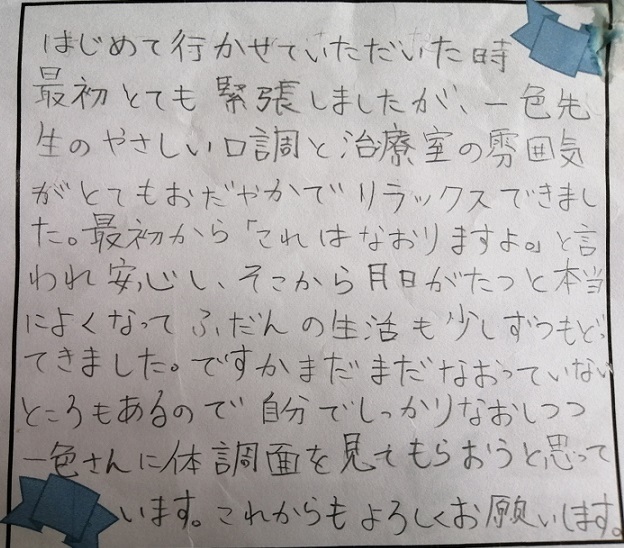 はじめて行かせていただいた時
最初とても緊張しましたが、一色先
生のやさしい口調と治療室の雰囲気
がとてもおだやかでリラックスできまし
た。最初から「これはなおりますよ。」と言
われ安心し、そこから月日がたつと本当
によくなってふだんの生活も少しずつもどっ
てきました。ですかまだまだなおっていない
ところもあるので自分でしっかりなおしつつ
一色さんに体調面を見てもらおうと思って
います。これからもよろしくお願いします。